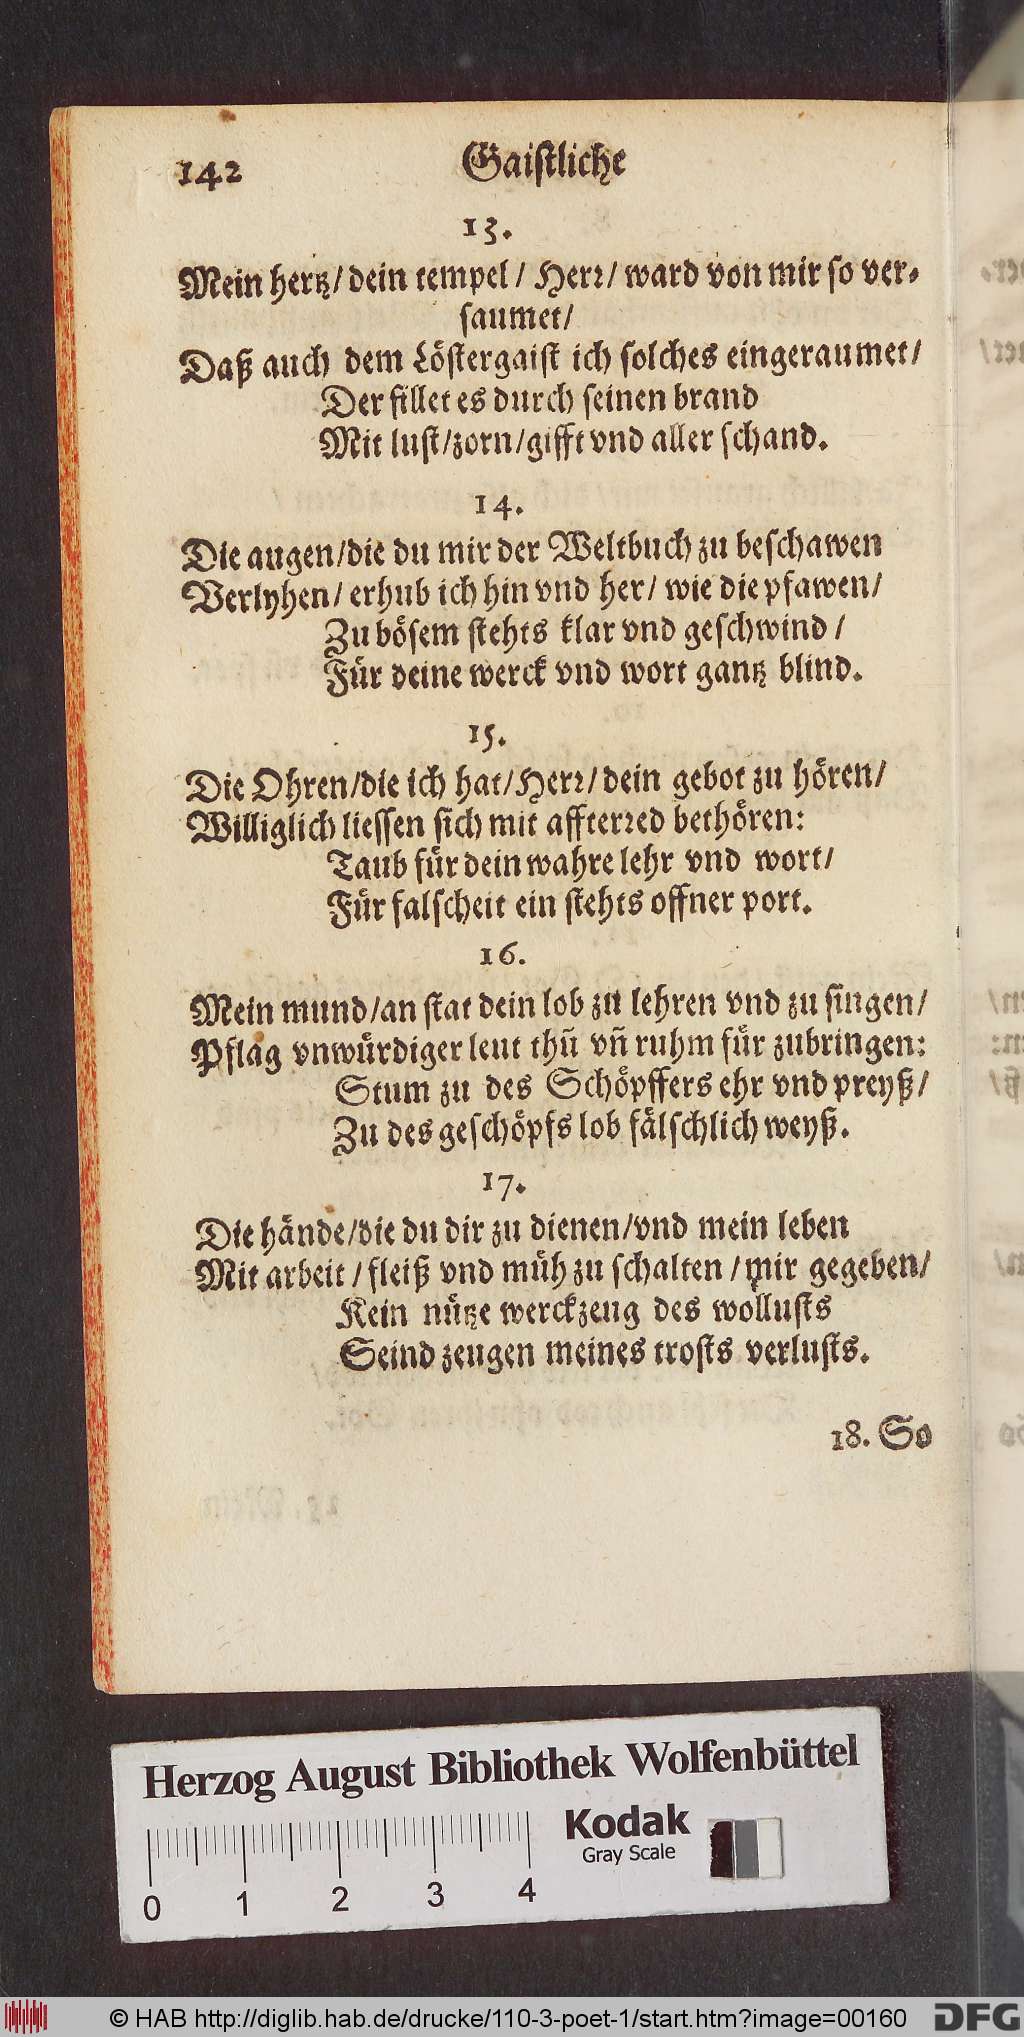 142 Gaistliche
13.
Mein hertz/ dein tempel/ Herr/ ward von mir so ver-
saumet/
Daß auch dem Löstergaist ich solches eingeraumet/
Der fillet es durch seinen brand
Mit lust/zorn/gifft vnd aller schand.
14.
Die augen/die du mir der Weltbuch zu beschawen
Verlyhen/ erhub ich hin vnd her/ wie die pfawen/
Zu bösem stehts klar vnd geschwind/
Für deine werck vnd wort gantz blind.
15.
Die Ohren/die ich hat/Herr/ dein gebot zu hören/
Williglich liessen sich mit affterred bethören:
Taub für dein wahre lehr vnd wort/
Für falscheit ein stehts offner port.
16.
Mein mund/an stat dein lob zu lehren vnd zu singen/
Pflag vnwürdiger leut thũ vñ ruhm für zubringen:
Stum zu des Schöpffers ehr vnd preyß/
Zu des geschöpfs lob fälschlich weyß.
17.
Die hände/die du dir zu dienen/vnd mein leben
Mit arbeit/ fleiß vnd müh zu schalten/mir gegeben/
Kein nütze werckzeug des wollusts
Seind zeugen meines trosts verlusts.
18. So
Herzog August Bibliothek Wolfenbüttel
Kodak
Gray Scale
0 1 2 3 4
© HAB http://diglib.hab.de/drucke/110-3-poet-1/start.htm?image=00160 DFG